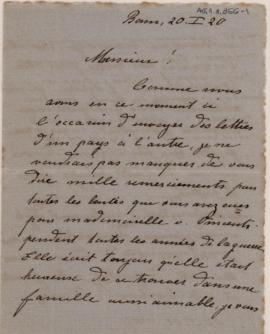 AG.1.1.1.856-1
Bonn, 20. I 20
Monsieur!
Comme nous
avons en ce moment ici
l'occasion d'envoyer des lettres
d'un pays à l'autre, je ne
voudrais pas manquer de vous
dire mille remerciements pour
toutes les bontés que vous avez eues
pour mademoiselle v.
pendent toutes les années de la guerre.
Elle écrit toujours qu'elle était
heureuse de se trouver dans une
famille aussi aimable, je vous